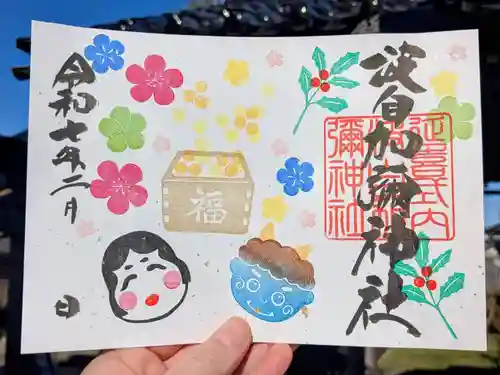 波自加彌神社
延喜式内
波自加
彌神社
福
令和七年二月 日